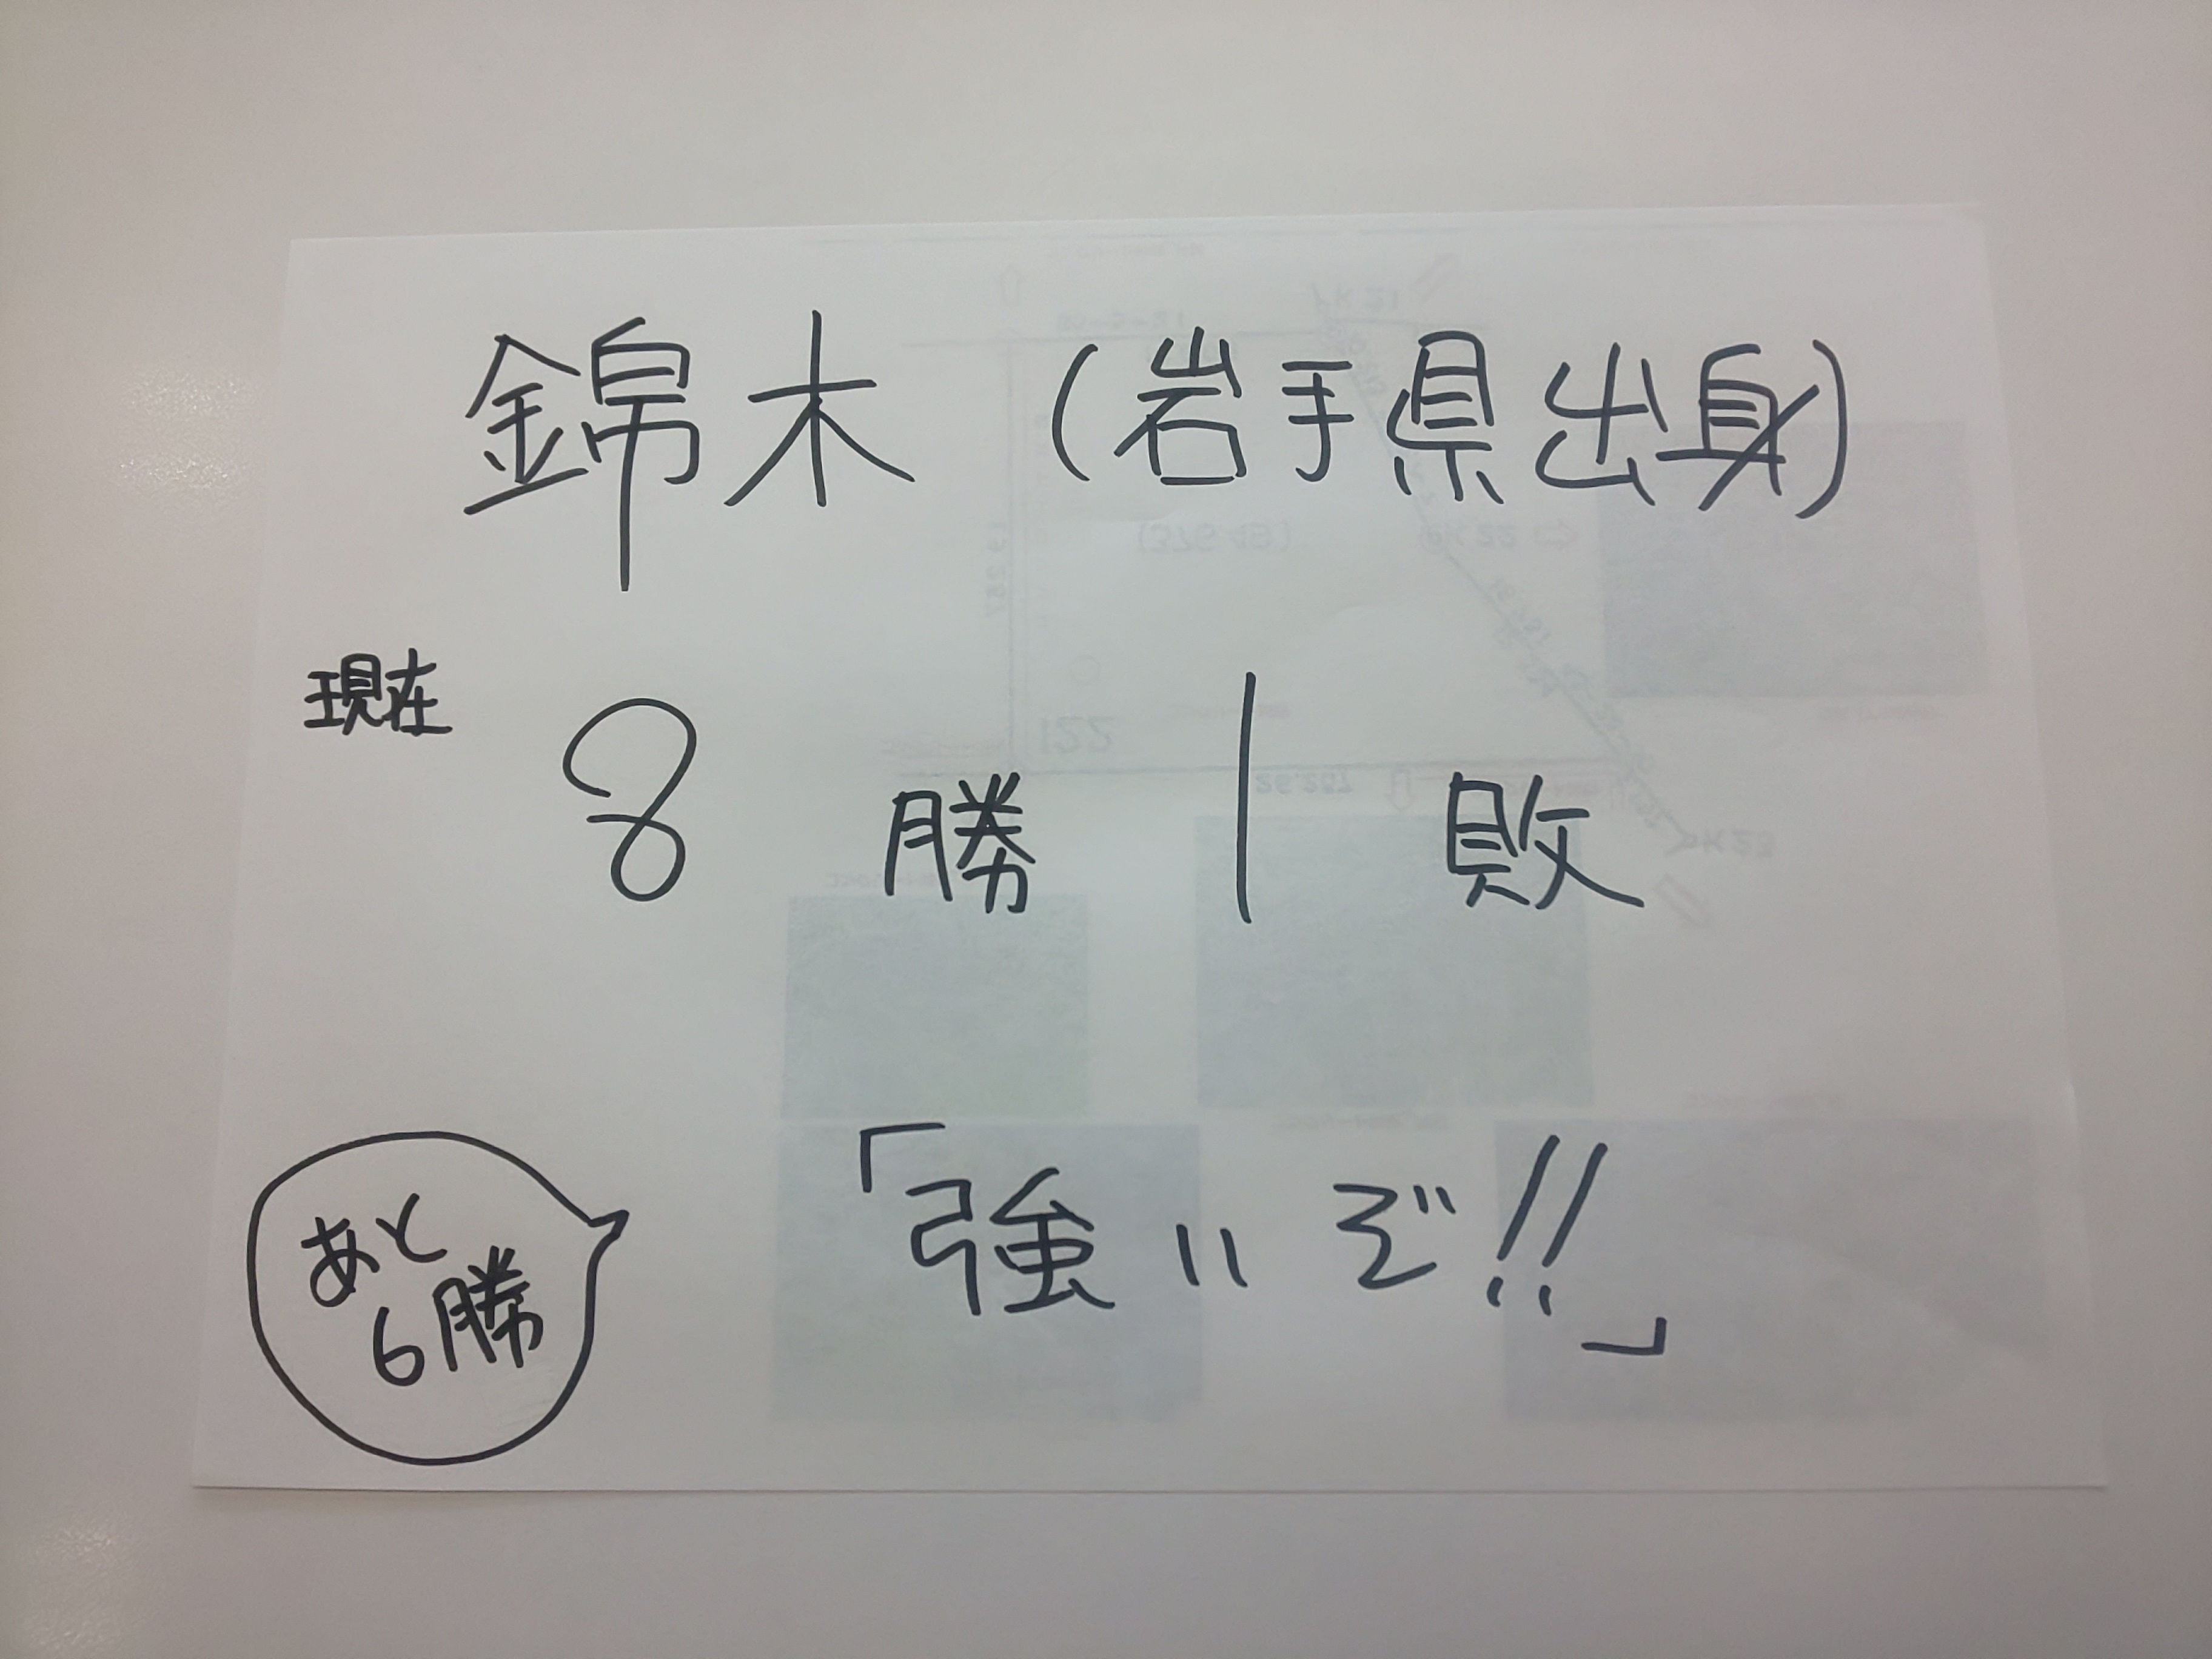 錦木 (岩手県出身)
現在 8 勝 1 敗
あと
6勝
「強いぞ!!」